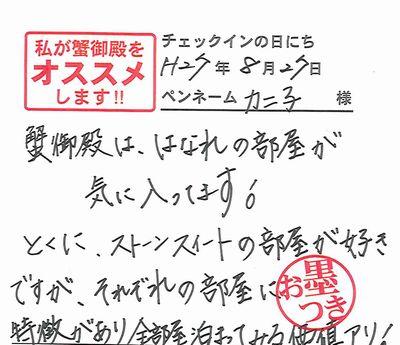 私が蟹御殿を
オススメ
します!!
チェックインの日にち
H27年8月27日
ペンネーム カニ子 様
蟹御殿は、はなれの部屋が
気に入ってます!
とくに、ストーンスイートの部屋が好き
ですが、それぞれの部屋に
お墨
つき
特徴があり全部屋泊まってみる価値アリ!